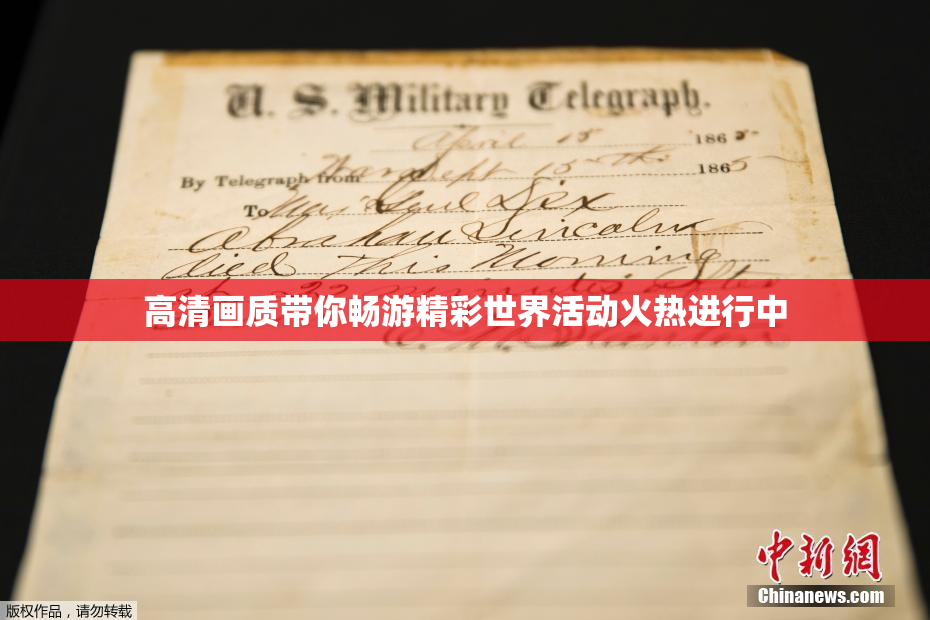 U. S. Military Telegraph.
April 15 1865
By Telegraph from War Dept 15th 1865
To Maj Genl Dix
Abraham Lincoln
died This Morning
at 22 minutes after
高清画质带你畅游精彩世界活动火热进行中
E. M. Stanton
中新网
Chinanews.com
版权作品，请勿转载